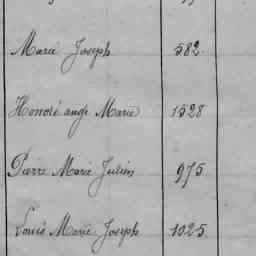 Marie Joseph 582.
Honoré ange Marie 1528
Pierre Marie Julien 975
Louis Marie Joseph 1025